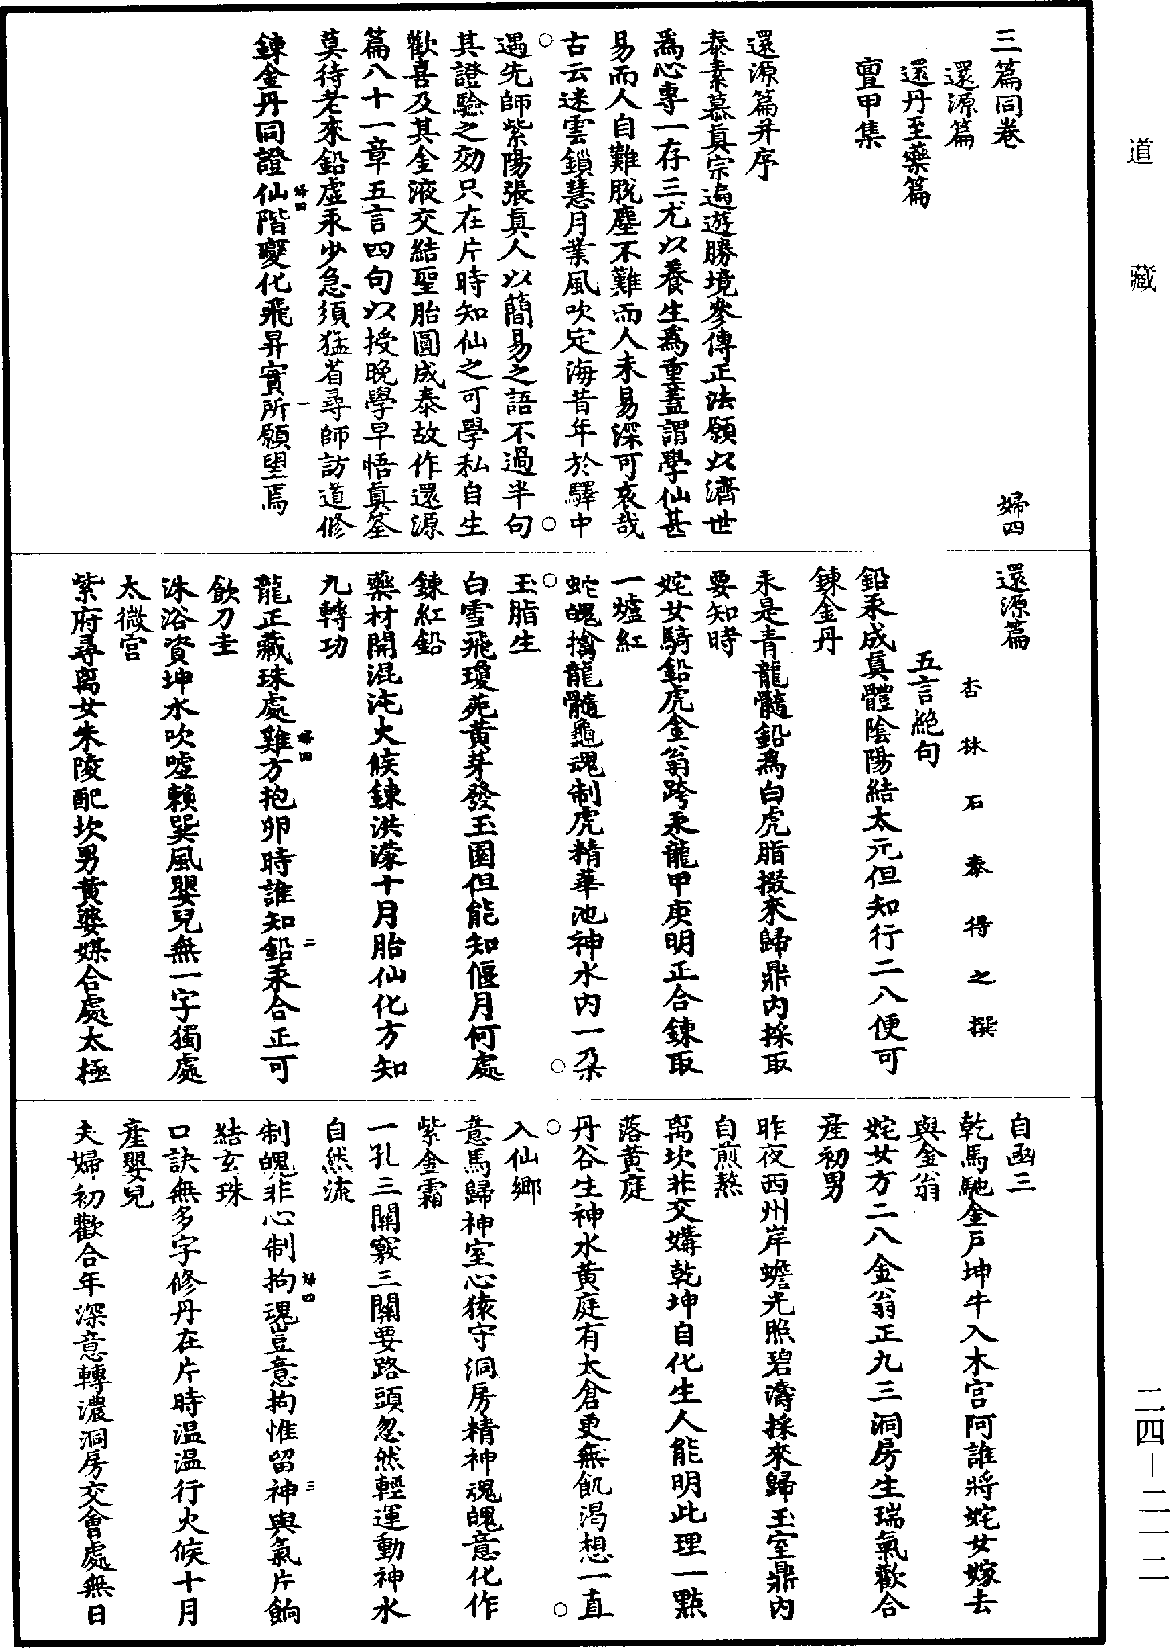 三篇同卷
還源篇
還丹至藥篇
亶甲集
婦四
還源篇并序
泰素慕真宗遍遊勝境參傳正法願以濟世
爲心專一存三尤以養生爲重蓋謂學仙甚
易而人自難脫塵不難而人未易深可哀哉
古云迷雲鎖慧月業風吹定海昔年於驛中
遇先師紫陽張真人以簡易之語不過半句
其證驗之効只在片時知仙之可學私自生
歡喜及其金液交結聖胎圓成泰故作還源
篇八十一章五言四句以授晚學早悟真筌
莫待老來鉛虛汞少急須猛省尋師訪道修
鍊金丹同證仙階變化飛昇實所願望焉
婦四
一
還源篇
杏林石泰得之撰
五言絕句
鉛汞成真體陰陽結太元但知行二八便可
鍊金丹
汞是青龍髓鉛爲白虎脂掇來歸鼎內採取
要知時
姹女騎鉛虎金翁跨汞龍甲庚明正合鍊取
一爐紅
蛇魄擒龍髓龜魂制虎精華池神水內一朶
玉脂生
白雪飛瓊苑黄芽發玉園但能知偃月何處
鍊紅鉛
藥材開混沌火候鍊洪濛十月胎仙化方知
九轉功
龍正藏珠處雞方抱卵時誰知鉛汞合正可
飲刀圭
婦四
二
沐浴資坤水吹噓賴巽風嬰兒無一字獨處
太微宮
紫府尋离女朱陵配坎男黄婆媒合處太極
自函三
乾馬馳金戶坤牛入木宮阿誰將姹女嫁去
與金翁
姹女方二八金翁正九三洞房生瑞氣歡合
産初男
昨夜西州岸蟾光照碧濤採來歸玉室鼎內
自煎熬
离坎非交媾乾坤自化生人能明此理一點
落黄庭
丹谷生神水黄庭有太倉更無飢渴想一直
入仙鄉
意馬歸神室心猿守洞房精神魂魄意化作
紫金霜
一孔三關竅三關要路頭忽然輕運動神水
自然流
制魄非心制拘魂豈意拘惟留神與氣片餉
結玄珠
婦四
三
口訣無多字修丹在片時温温行火候十月
産嬰兒
夫婦初歡合年深意轉濃洞房交會處無日
道藏
二四—二一二